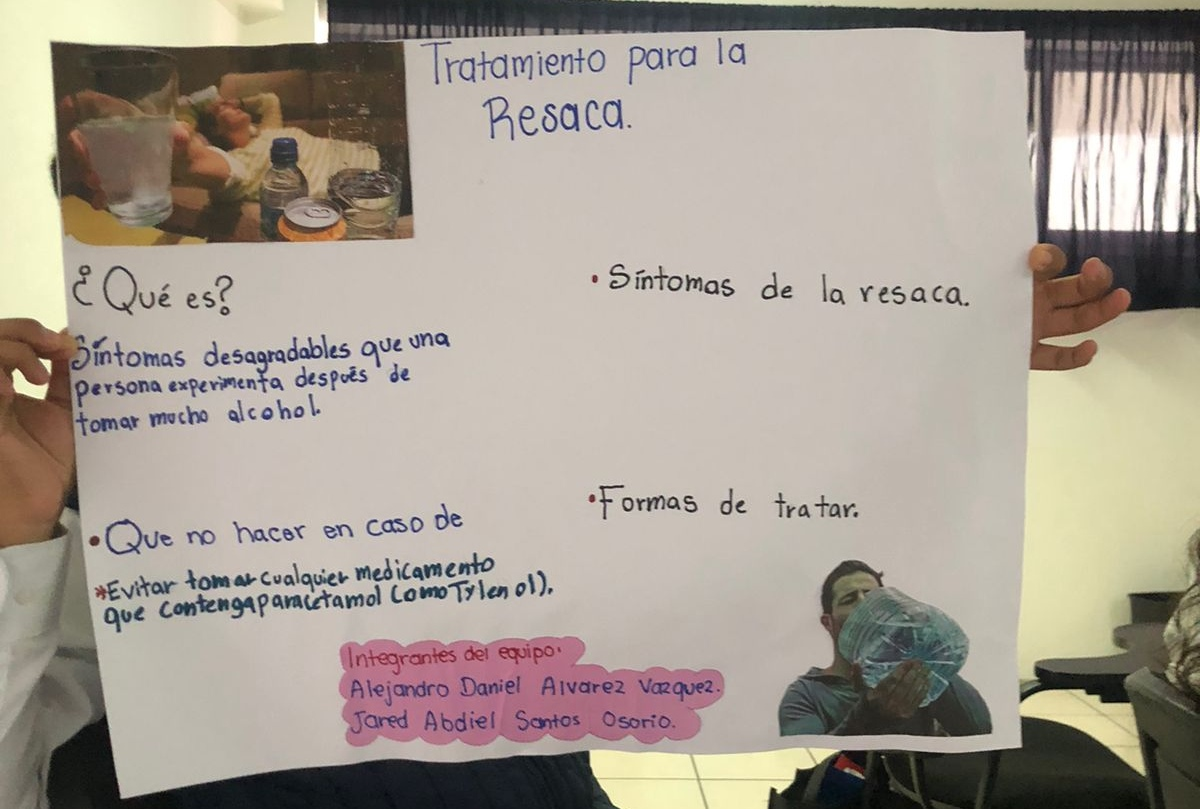 Tratamiento para la
Resaca.
¿Qué es?
Síntomas desagradables que una
persona experimenta después de
tomar mucho alcohol.
•Síntomas de la resaca.
•Que no hacer en caso de
*Evitar tomar cualquier medicamento
que contenga paracetamol (como Tylenol).
•Formas de tratar.
Integrantes del equipo:
Alejandro Daniel Alvarez Vazquez.
Jared Abdiel Santos Osorio.